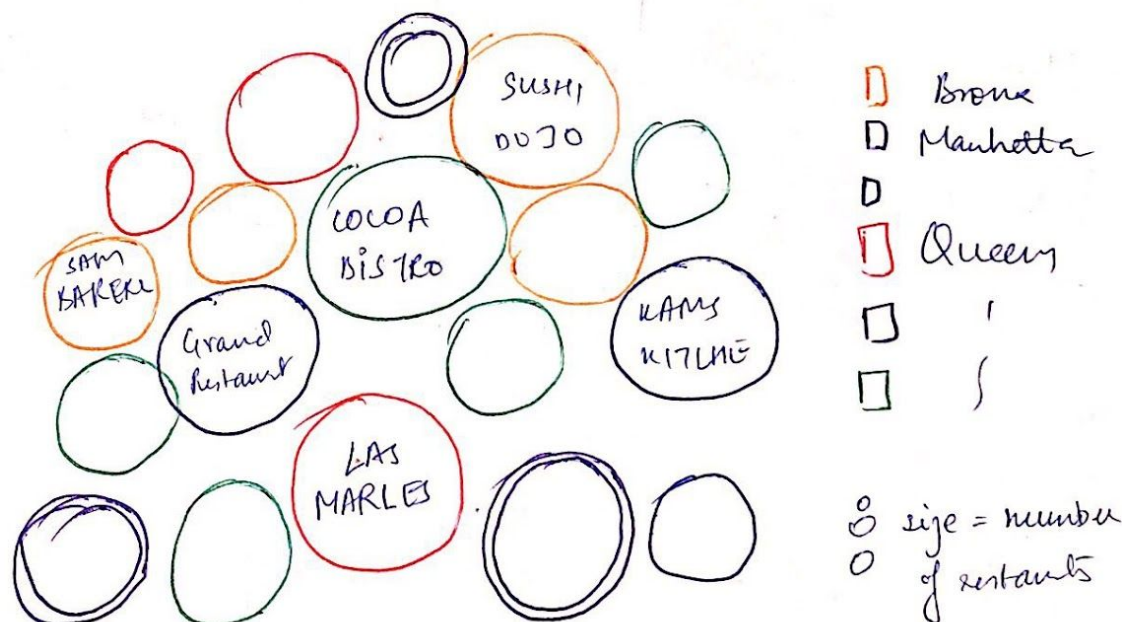 SUSHI
DOJO
COCOA
BISTRO
SAM
BAKERE
Grand
Restaurt
KAMS
KITCHE
LAS
MARLES
Bronx
Manhetta
Queens
size = number
of restaurts